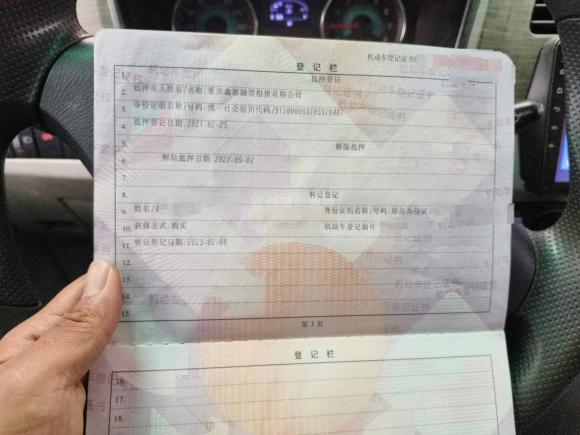 机动车登记证书
登记栏
1. 抵押登记
2. 抵押权人姓名/名称:重庆鑫源融资租赁有限公司
3. 身份证明名称/号码:统一社会信用代码
4. 抵押登记日期:2021-02-25
5. 解除抵押
6. 解除抵押日期:2022-09-02
7.
8. 转让登记
9. 姓名/ 身份证明名称/号码:居民身份证
10. 获得方式:购买 机动车登记编号
11. 转让登记日期:2023-02-08
12.
13.
14.
15.
第 3 页
登记栏
16.
17.
18.